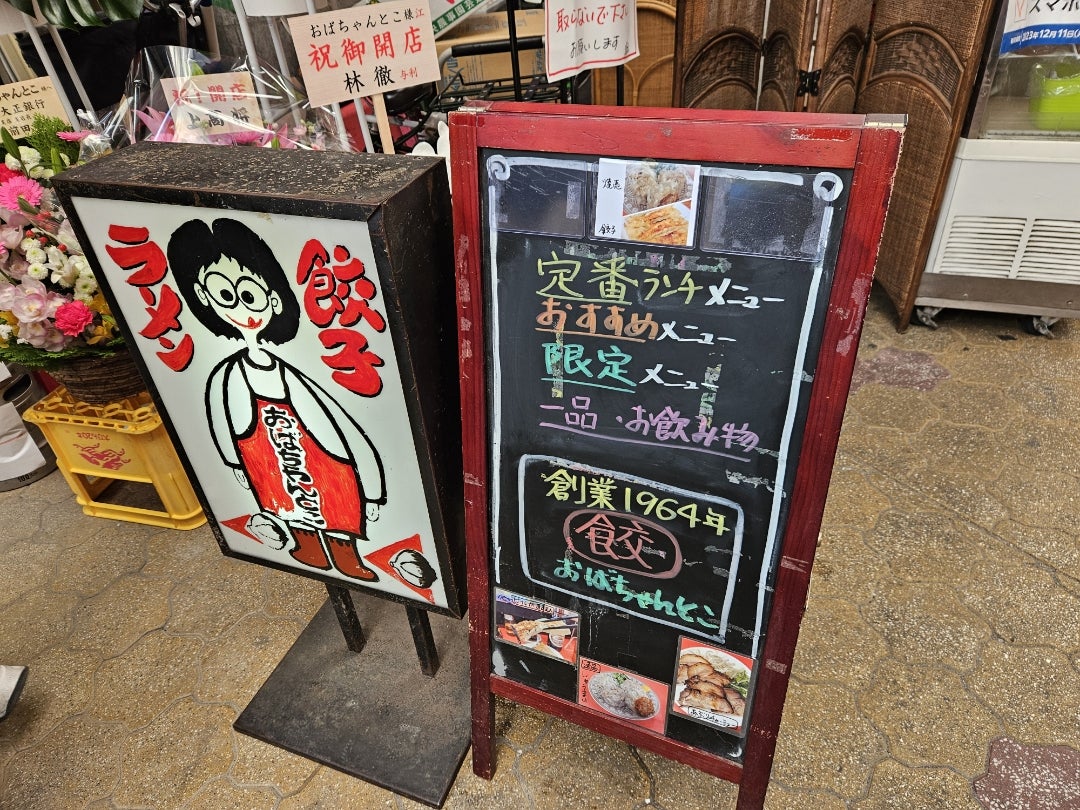 おばちゃんとこ様江
祝御開店
林徹 与利
取らないで下さい
お願いします
2023年12月11日
ちゃんとこ様へ
大正銀行
ラーメン
餃子
おばちゃんとこ
焼売
餃子
定番ランチメニュー
おすすめメニュー
限定メニュー
一品・お飲み物
創業1964年
餃
おばちゃんとこ